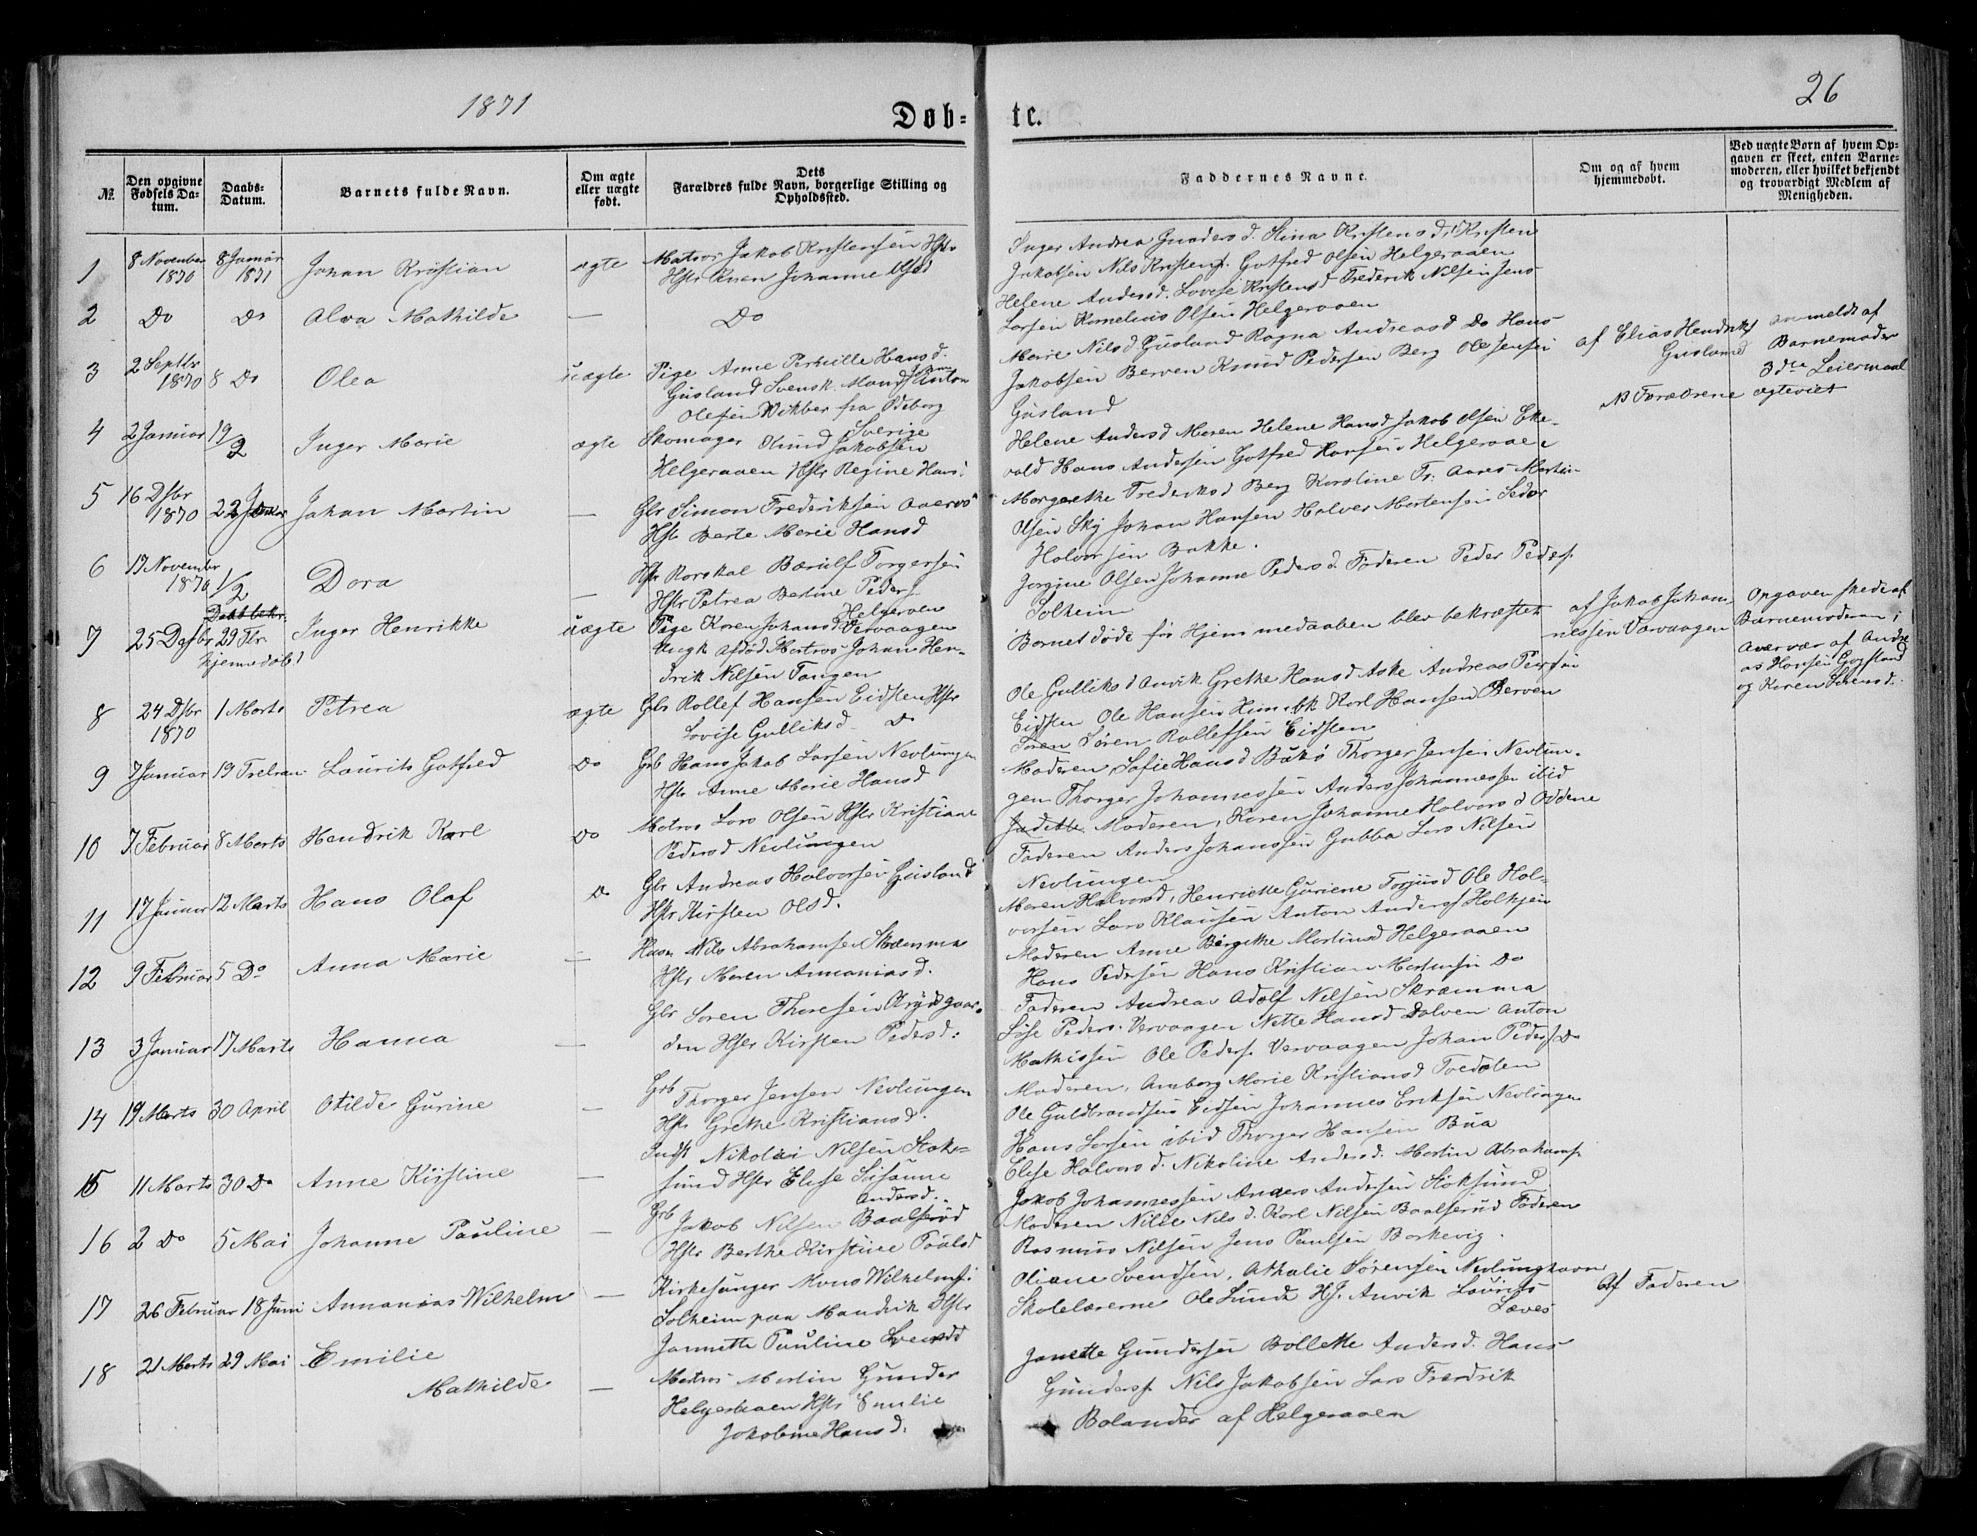 1871
Døb-
te.
26
№.
Den opgivne Fødsels Da-tum.
Daabs-Datum.
Barnets fulde Navn.
Om ægte eller uægte født.
Dets Forældres fulde Navn, borgerlige Stilling og Opholdssted.
Faddernes Navne.
Om og af hvem hjemmedøbt.
Ved uægte Børn af hvem Op-gaven er skeet, enten Barne-moderen, eller hvilket bekjendt og troværdigt Medlem af Menigheden.
1
8 November 1870
8 Januar 1871
Johan Kristian
ægte
Matros Jakob Kristensen Hstr
Hstr Karen Johanne Olsd
Inger Andrea Gundersd. Stina Kristensd. Kristen
Jakobsen Nils Kristens. Gotfred Olsen Helgeraaen
2
Do
Do
Alva Mathilde
—
Do
Helene Andersd. Lovise Kristensd Frederik Nilsen Jens
Larsen Kornelius Olsen Helgeraaen
3
2 Septbr 1870
8 Do
Olea
uægte
Pige Anne Pernille Hansd.
Gusland Svensk Mand Anton
Olesen Wikber fra
Sverige
Marie Nilsd Gusland Ragna Andreasd Do Hans
Jakobsen Berven Knud Pedersen Berg Ole Jensen
Gusland
af Elias Hendriks
Gusland
anmeldt af
Barnemoder
3die Leiermaal
NB Forældrene ægteviet
4
2 Januar
19/2
Inger Marie
ægte
Skomager Knud Jakobsen
Helgeraaen Hstr Regine Hans
Helene Andersd Maren Helene Hansd Jakob Olsen Eke-
vold Hans Andersen Gotfred Hansen Helgeraaen
5
16 Dsbr 1870
22 Januar
Johan Martin
—
Gbr Simon Frederiksen Aarvo
Hstr Berte Marie Hansd
Margrethe Frederiksd Berg Karoline Fr. Aarøs Martin
Olsen Sky Johan Hansen Halvor Mortensen
Halvorsen Bakke.
6
17 November 1870
1/2
Dora
—
Torgersen
Hstr Petrea Bertine Peders
Jorgine Olsen Johanne Pedersd Faderen Peder Peders
Solheim
7
25 Desbr
Daabbekr.
29 Fbr.
hjemmedøbt
Inger Henrikke
uægte
Pige Karen Johansd Vervaagen
Helgeroen
Ungk Matros Johan Hen-
drik Nilsen Tangen
Barnet døde før Hjemmedaaben blev bekræftet
af Jakob Johan-
nessen Værvaagen
Opgaven skede af
Barnemoderen i
Overvær af Andre
as Hansen
og Karen Sørensd.
8
24 Dsbr 1870
1 Marts
Petrea
ægte
Gbr Rollef Hansen Eidsten Hstr
Lovise Gulliksd. Do
Ole Gulliksd Anvik Grethe Hansd Aske Andreas
Eidsten Ole Hansen Karl Hansen Berven
Søren Rollefsen Eidsten
9
7 Januar
19 Februar
Laurits Gotfred
Do
Grb Hans Jakob Larsen Nevlungen
Hstr Anne Marie Hansd
Moderen Sofie Hansd Thorger Jensen Nevlun-
gen Thorger Johannessen Anders Johannessen ibid
10
7 Februar
8 Marts
Hendrik Karl
Do
Matros Lars Olsen Hstr Kristiane
Pedersd Nevlungen
Moderen, Karen Johanne Halvorsd Oddene
Faderen Anders Johansen Gubba Lars Nilsen
Nevlungen
11
17 Januar
12 Marts
Hans Olaf
Do
Gbr Andreas Halvorsen Gusland
Hstr Kirsten Olsd.
Maren Halvorsd, Henriette Guriene Torjusd Ole Hal-
vorsen Lars Klausen Anton Anders Holtjen
12
9 Februar
5 Do
Anna Marie
—
Nils Abrahamsen Skræmma
Hstr Maren Annaniasd.
Moderen Anne Birgithe Martinsd Helgeraaen
Hans Pedersen Hans Kristian Mortensen Do
Faderen Andreas Adolf Nilsen Skræmma
13
3 Januar
17 Marts
Hanna
—
Gbr Soren Thoresen Brydgaar-
den Hstr Kirsten Pedersd:
Peders. Vervaagen Nette Hansd Dolven Anton
Mathissen Ole Peders Vervaagen Johan Peders. Do
14
19 Marts
30 April
Otilde Gurine
—
Grb Thorger Jensen Nevlungen
Hstr Grethe Kristiansd.
Moderen, Amborg Marie Kristiansd Foldalen
Ole Guldbrandsen Eidsen Johannes Eriksen Nevlungen
Hans Larsen ibid Thorger Hansen Bua
15
11 Marts
30 Do
Anne Kirstine
—
Inds Nikolai Nilsen Stok-
sund Hstr Elise Susanne
Andersd.
Elise Halvorsd. Nikoline Andersd. Martin Abrahams
Jakob Johannessen Anders Andersen Stoksund
16
2 Do
5 Mai
Johanne Pauline
—
Grb Jakob Nilsen Baalserød
Hstr Berthe Kirstine Poulsd
Moderen Nille Nilsd. Karl Nilsen Baalserud Faderen
Rasmus Nilsen Jens Paulsen Barkevig.
17
26 Februar
18 Juni
Annanias Wilhelm
—
Kirkesanger Mons Wilhelmsen
Solheim paa Manvik Hstr
Jannette Pauline Svendsd
Oliane Svendsen, Athalie Sørensen Nevlunghavn
Skolelærerne Ole Lunde Hs. Anvik Laurits
Løves
Af Faderen
18
21 Marts
29 Mai
Emilie
Mathilde
—
Matros Martin Gunder
Helgeraaen Hstr Emilie
Jakobine Hansd.
Janette Gundersen Bollette Andersd. Hans
Gunders Nils Jakobsen Lars Fredrik
Bolander af Helgeraaen